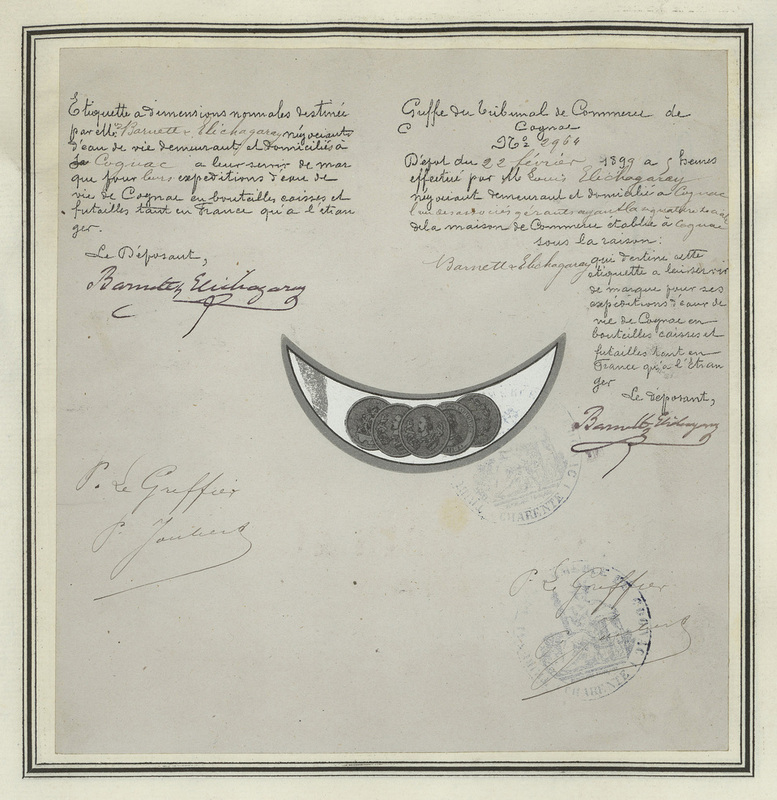 Etiquette a dimensions normales destinée
par elle, Barnett & Elichagaray négociants
d'eau de vie demeurant, et domiciliés à
Cognac a leur servir de mar
que pour leurs expéditions d'eau de
vie de Cognac en bouteilles caisses et
futailles tant en France qu'a l'étran
ger.
Le Déposant,
Barnett & Elichagaray
P. Le Greffier
P. Joubert
Greffe du Tribunal de Commerce de
Cognac
N° 2964
Dépot du 22 février 1899 a 5 heures
effectué par M. Louis Elichagaray
négociant demeurant et domicilié à Cognac
l'un des associés gérants ayant la signature sociale
de la maison de Commerce établie à Cognac
sous la raison:
Barnett & Elichagaray qui destine cette
étiquette a leur servir
de marque pour ses
expéditions d'eau de
vie de Cognac en
bouteilles caisses et
futailles tant en
France qu'a l'étran
ger
Le déposant,
Barnett & Elichagaray
CHARENTE
P. Le Greffier
P. Joubert
CHARENTE